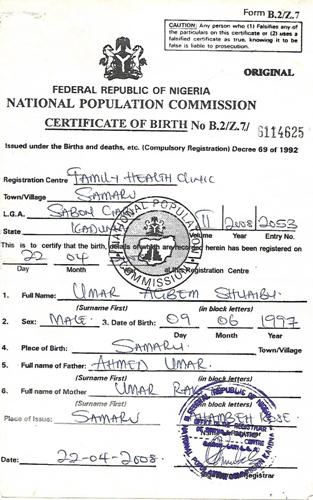 Form B.2/Z.7
CAUTION: Any person who (1) Falsifies any of the particulars on this certificate or (2) uses a falsified certificate as true, knowing it to be false is liable to prosecution.
ORIGINAL
FEDERAL REPUBLIC OF NIGERIA
NATIONAL POPULATION COMMISSION
CERTIFICATE OF BIRTH No B.2/Z.7/ 6114625
Issued under the Births and deaths, etc. (Compulsory Registration) Decree 69 of 1992
Registration Centre FAMILY HEALTH CLINIC
Town/Village SAMARU
L.G.A. SABON
State KADUNA Volume II Year 2008 Entry No. 2053
This is to certify that the birth, details of which are recorded herein has been registered on
22 04 at this Registration Centre
Day Month
1. Full Name: UMAR SHUAIBU
(Surname First) (in block letters)
2. Sex: MALE 3. Date of Birth: 09 06 1997
Day Month Year
4. Place of Birth: SAMARU Town/Village
5. Full name of Father: AHMED UMAR
(Surname First) (in block letters)
6. Full name of Mother UMAR
(Surname First) (in block letters)
Place of Issue: SAMARU
Date: 22-04-2008
NATIONAL POPULATION COMMISSION